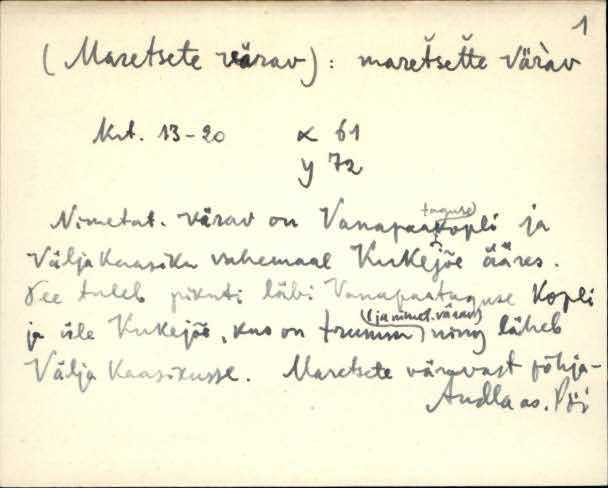 1
(Maretsete värav): maretšette väràv
Krt. 13-20 x 61
y 72
Nimetat. värav on Vanapaataguse kopli ja
Välja Kaasiku vahemaal Kukejõe ääres.
See tuleb pikuti läbi Vanapaataguse Kopli
ja üle Kukejõe, kus on trumm (ja nimet. värav) ning läheb
Välja Kaasikusse. Maretsete väravast põhja-
Andla as. Pöi